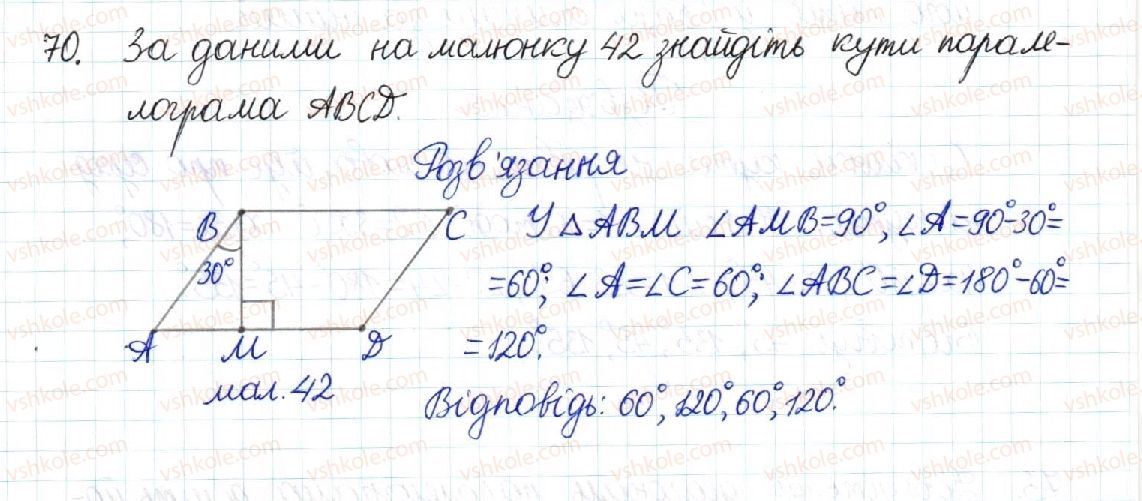 70. За даними на малюнку 42 знайдіть кути парале-
лограма ABCD.
Розв'язання
B
C
30°
A
M
D
мал. 42
У △ABM ∠AMB=90°, ∠A=90°-30°=
=60°; ∠A=∠C=60°; ∠ABC=∠D=180°-60°=
=120°.
Відповідь: 60°, 120°, 60°, 120°.
vshkole.com